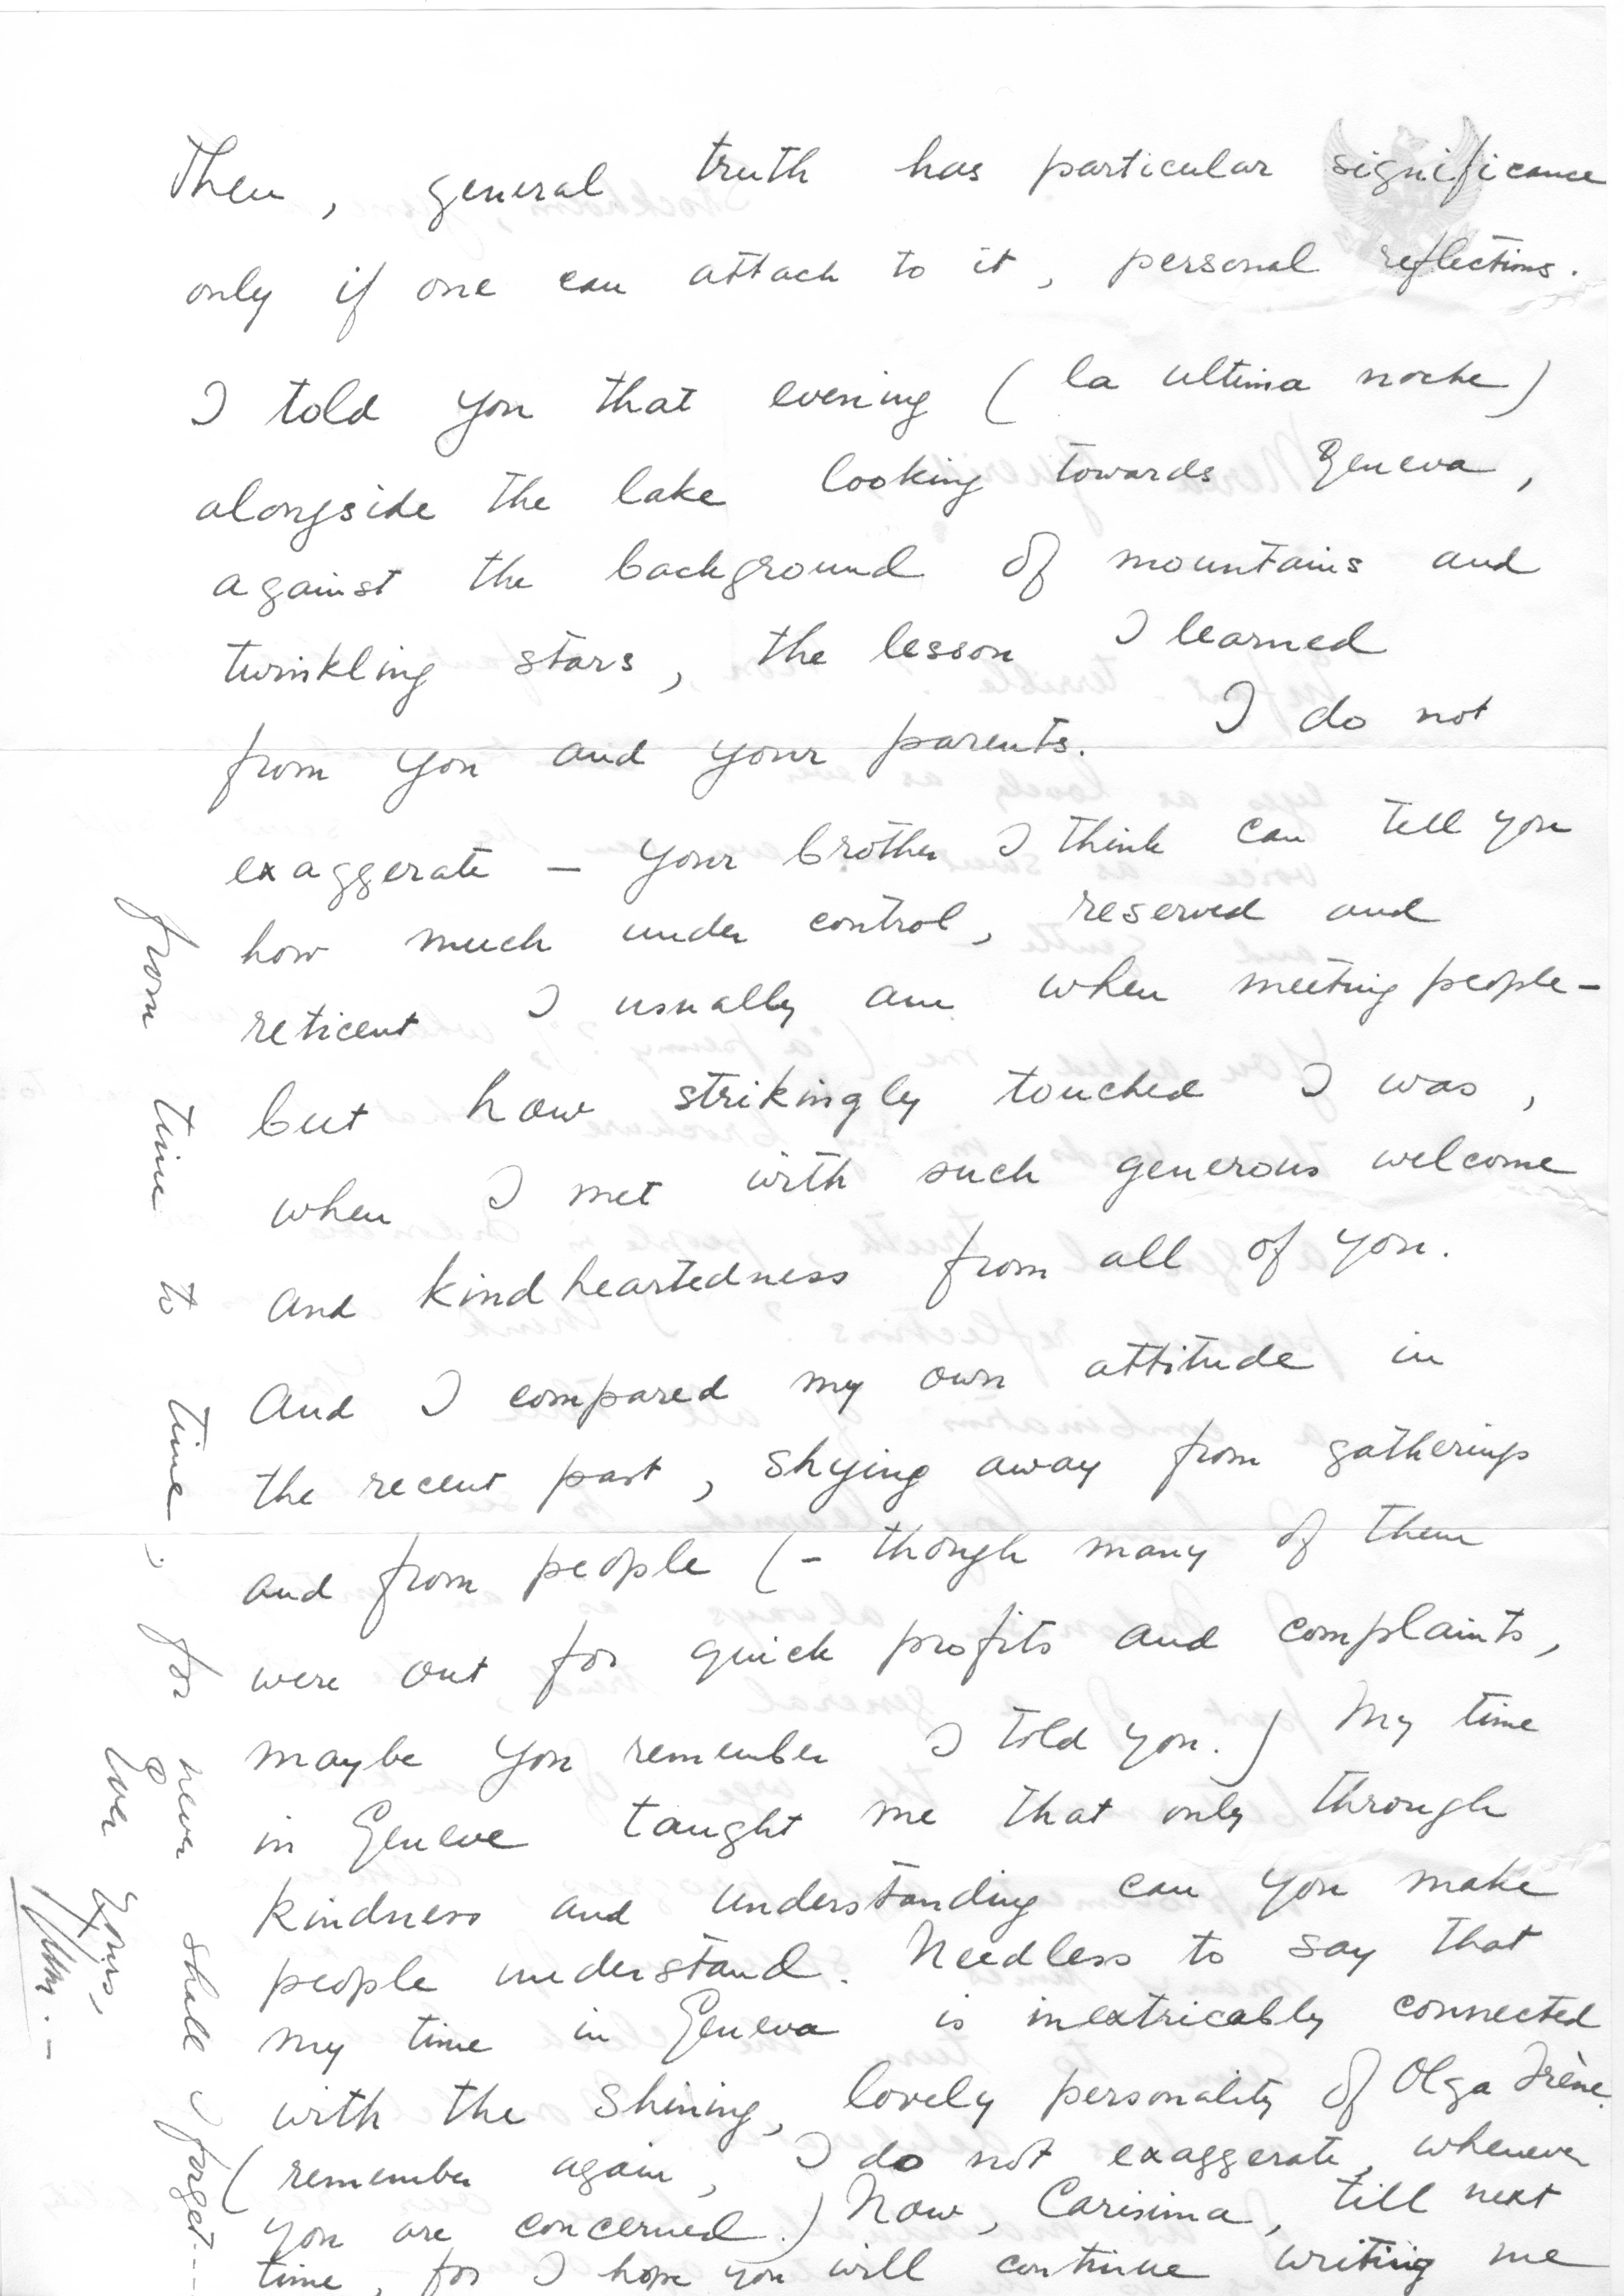 Then, general truth has particular significance
only if one can attach to it, personal reflections.
I told you that evening (la ultima noche)
alongside the lake looking towards Geneva,
against the background of mountains and
twinkling stars, the lesson I learned
from you and your parents. I do not
exaggerate — your brother I think can tell you
how much under control, reserved and
reticent I usually am when meeting people —
but how strikingly touched I was,
when I met with such generous welcome
and kindheartedness from all of you.
And I compared my own attitude in
the recent past, shying away from gatherings
and from people (- though many of them
were out for quick profits and complaints,
maybe you remember I told you.) My time
in Geneve taught me that only through
kindness and understanding can you make
people understand. Needless to say that
my time in Geneva is inextricably connected
with the shining, lovely personality of Olga Irène.
(remember again, I do not exaggerate, whenever
you are concerned.) Now, Carisima, till next
time, for I hope you will continue writing me
from time to time, for never shall I forget....
Ever yours,